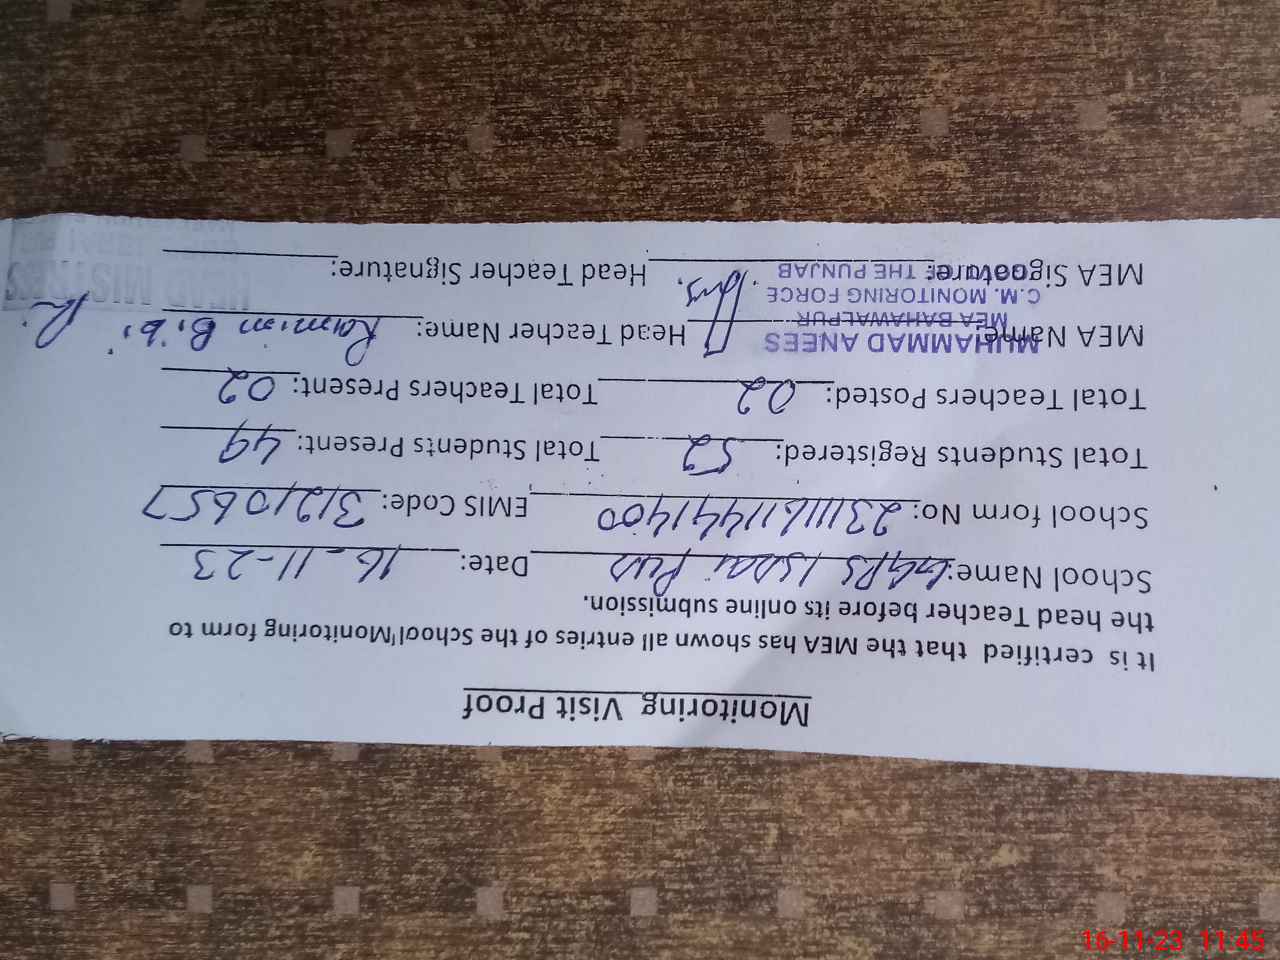 Monitoring Visit Proof
It is certified that the MEA has shown all entries of the School Monitoring form to
the head Teacher before its online submission.
School Name: GGPS Isaai Pur Date: 16-11-23
School form No: 23111611441400 EMIS Code: 31210657
Total Students Registered: 52 Total Students Present: 49
Total Teachers Posted: 02 Total Teachers Present: 02
MEA Name: Head Teacher Name: Bibi
MUHAMMAD ANEES
MEA BAHAWALPUR
C.M. MONITORING FORCE
THE PUNJAB
MEA Signature: Head Teacher Signature:
HEAD MISTRESS
16-11-23 11:45